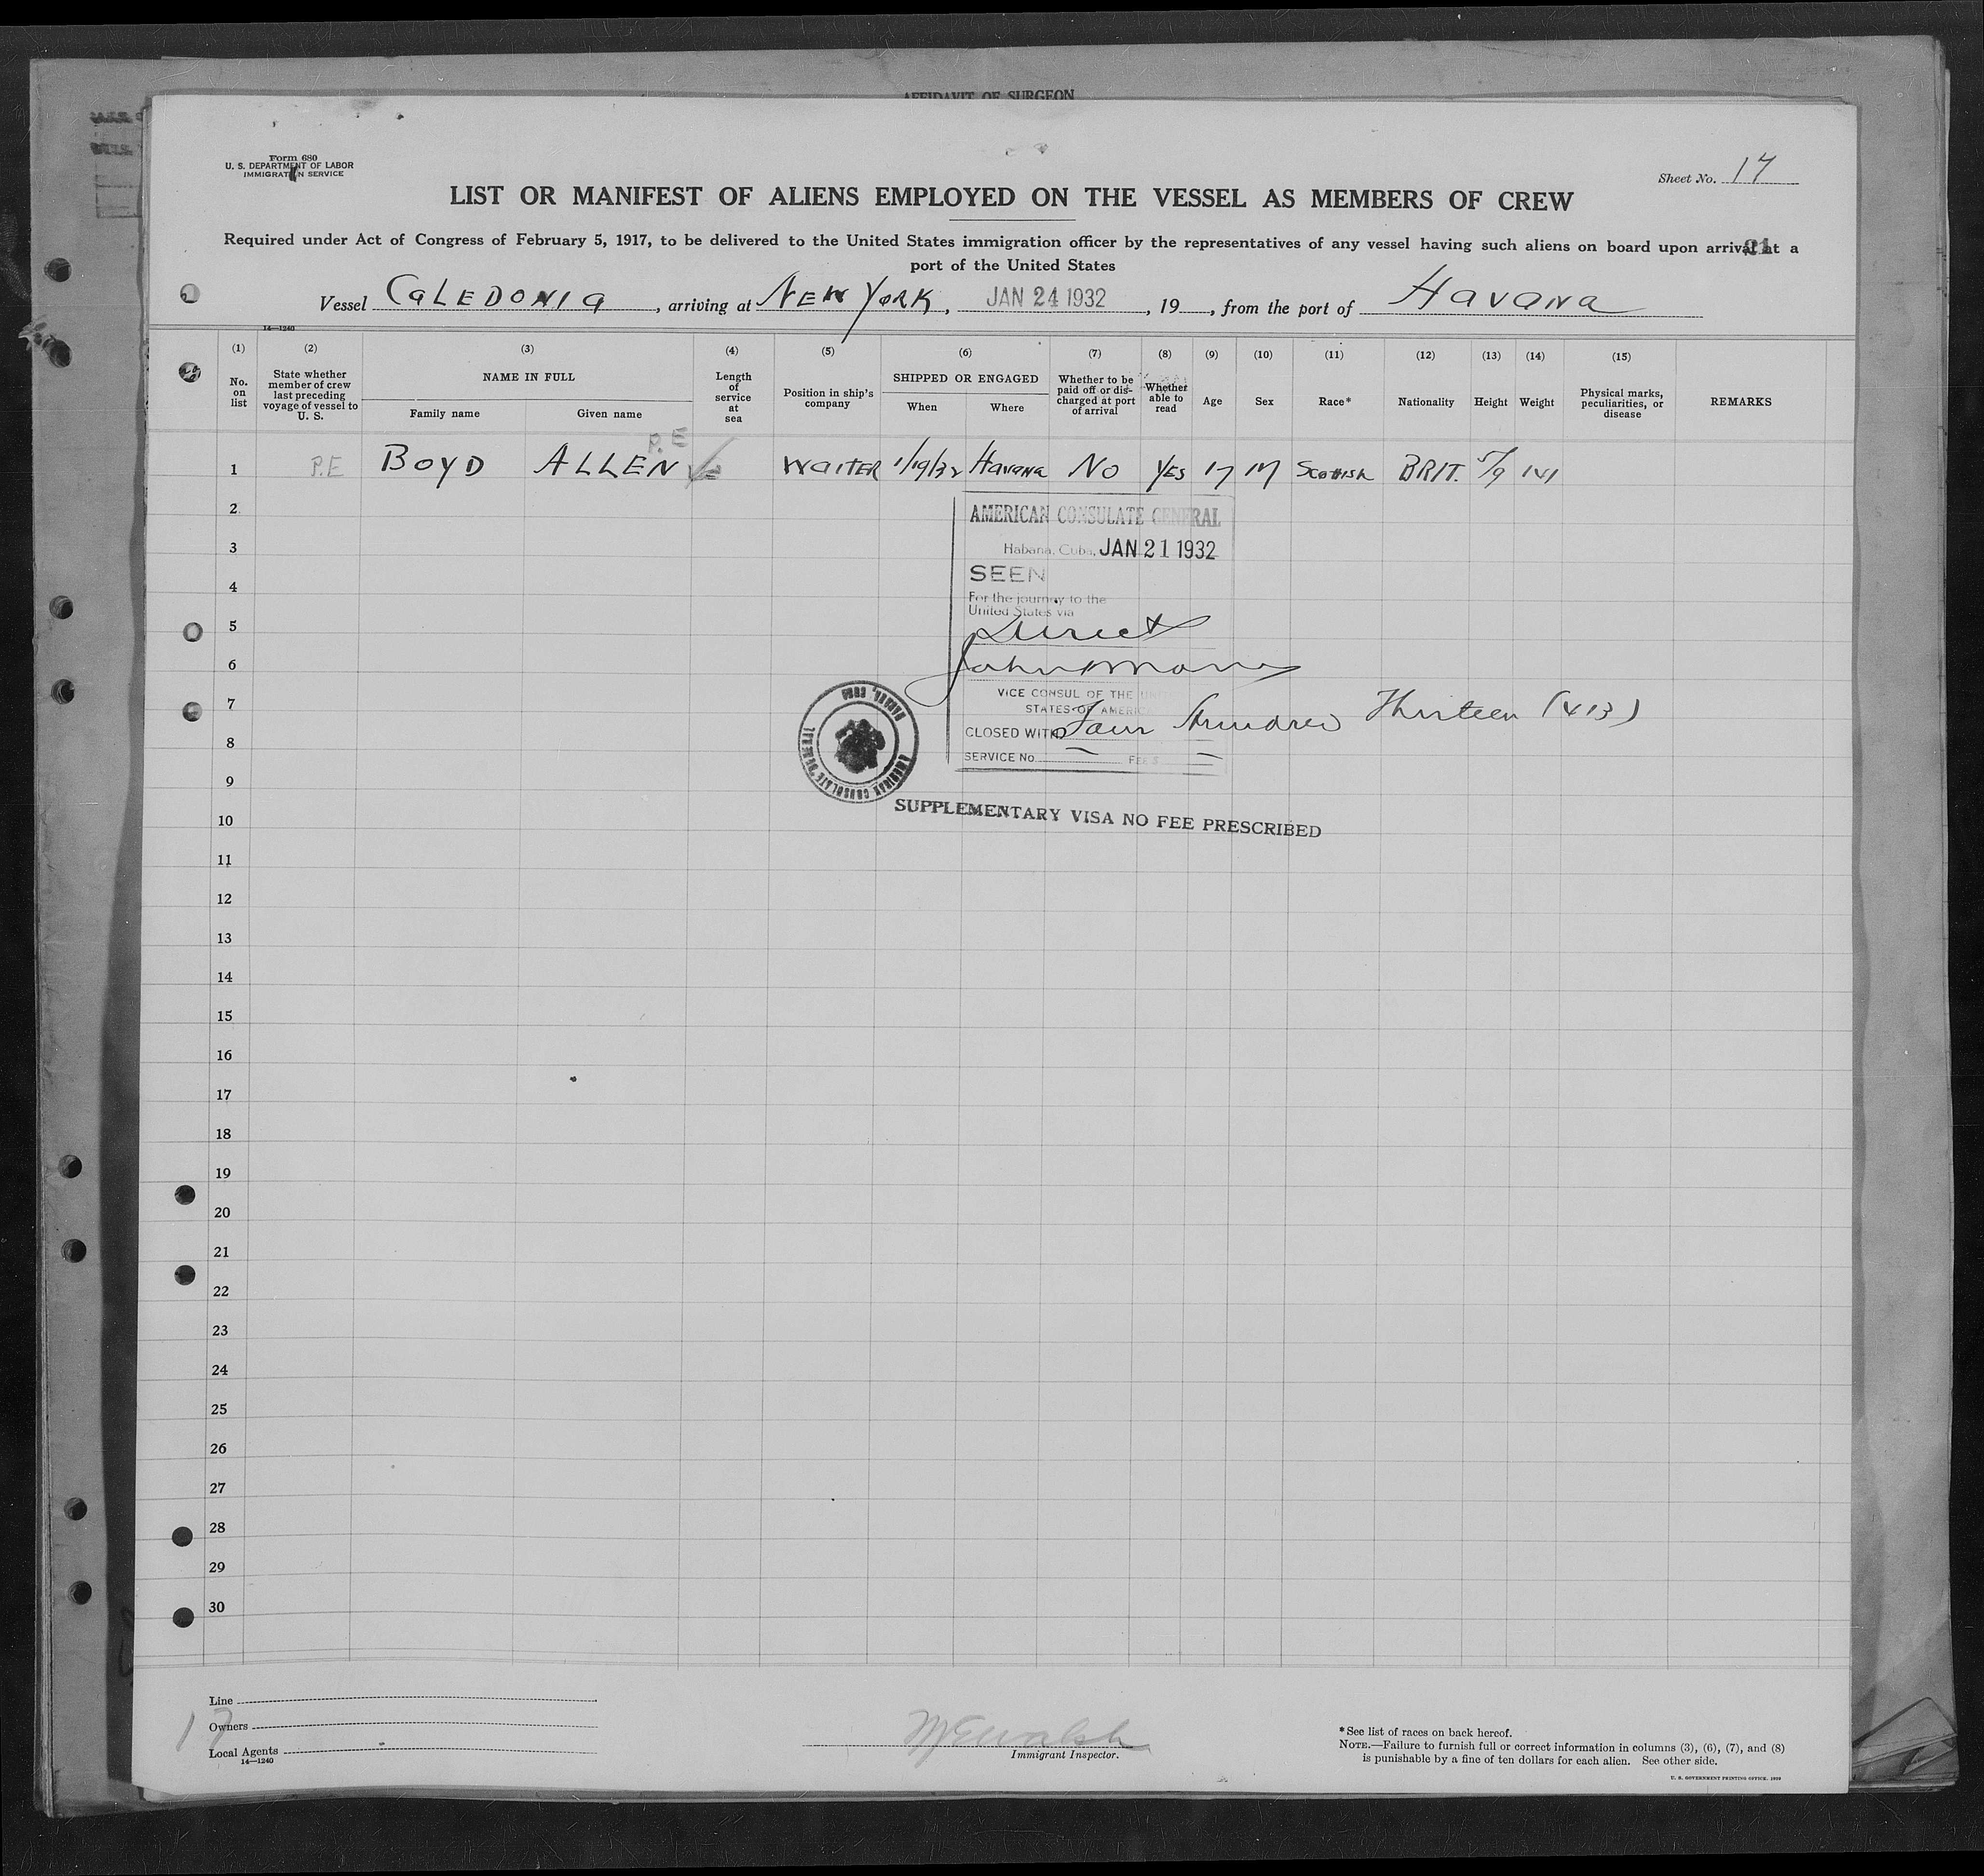 AFFIDAVIT OF SURGEON
Form 680
U. S. DEPARTMENT OF LABOR
IMMIGRATION SERVICE
Sheet No. 17
LIST OR MANIFEST OF ALIENS EMPLOYED ON THE VESSEL AS MEMBERS OF CREW
Required under Act of Congress of February 5, 1917, to be delivered to the United States immigration officer by the representatives of any vessel having such aliens on board upon arrival at a
port of the United States
Vessel CALEDONIA, arriving at NEW YORK, JAN 24 1932, 19, from the port of Havana
14—1240
(1) (2) (3) (4) (5) (6) (7) (8) (9) (10) (11) (12) (13) (14) (15)
No. on list
State whether member of crew last preceding voyage of vessel to U. S.
NAME IN FULL
Family name Given name
Length of service at sea
Position in ship's company
SHIPPED OR ENGAGED
When Where
Whether to be paid off or discharged at port of arrival
Whether able to read
Age
Sex
Race*
Nationality
Height
Weight
Physical marks, peculiarities, or disease
REMARKS
P.E
1 P.E BOYD ALLEN WAITER 1/19/32 Havana No YES 17 M Scottish BRIT. 5/9 141
2
AMERICAN CONSULATE GENERAL
3
Habana, Cuba, JAN 21 1932
SEEN
4
For the journey to the
United States via
5
Direct
6
7
VICE CONSUL OF THE UNITED
STATES OF AMERICA
8
CLOSED WITH Four Hundred Thirteen (413)
SERVICE No. FEE $
AMERICAN CONSULATE GENERAL
HABANA, CUBA
9
SUPPLEMENTARY VISA NO FEE PRESCRIBED
10
11
12
13
14
15
16
17
18
19
20
21
22
23
24
25
26
27
28
29
30
Line
Owners
17
Local Agents
14—1240
McWalsh
Immigrant Inspector.
*See list of races on back hereof.
NOTE.—Failure to furnish full or correct information in columns (3), (6), (7), and (8)
is punishable by a fine of ten dollars for each alien. See other side.
U. S. GOVERNMENT PRINTING OFFICE. 1929